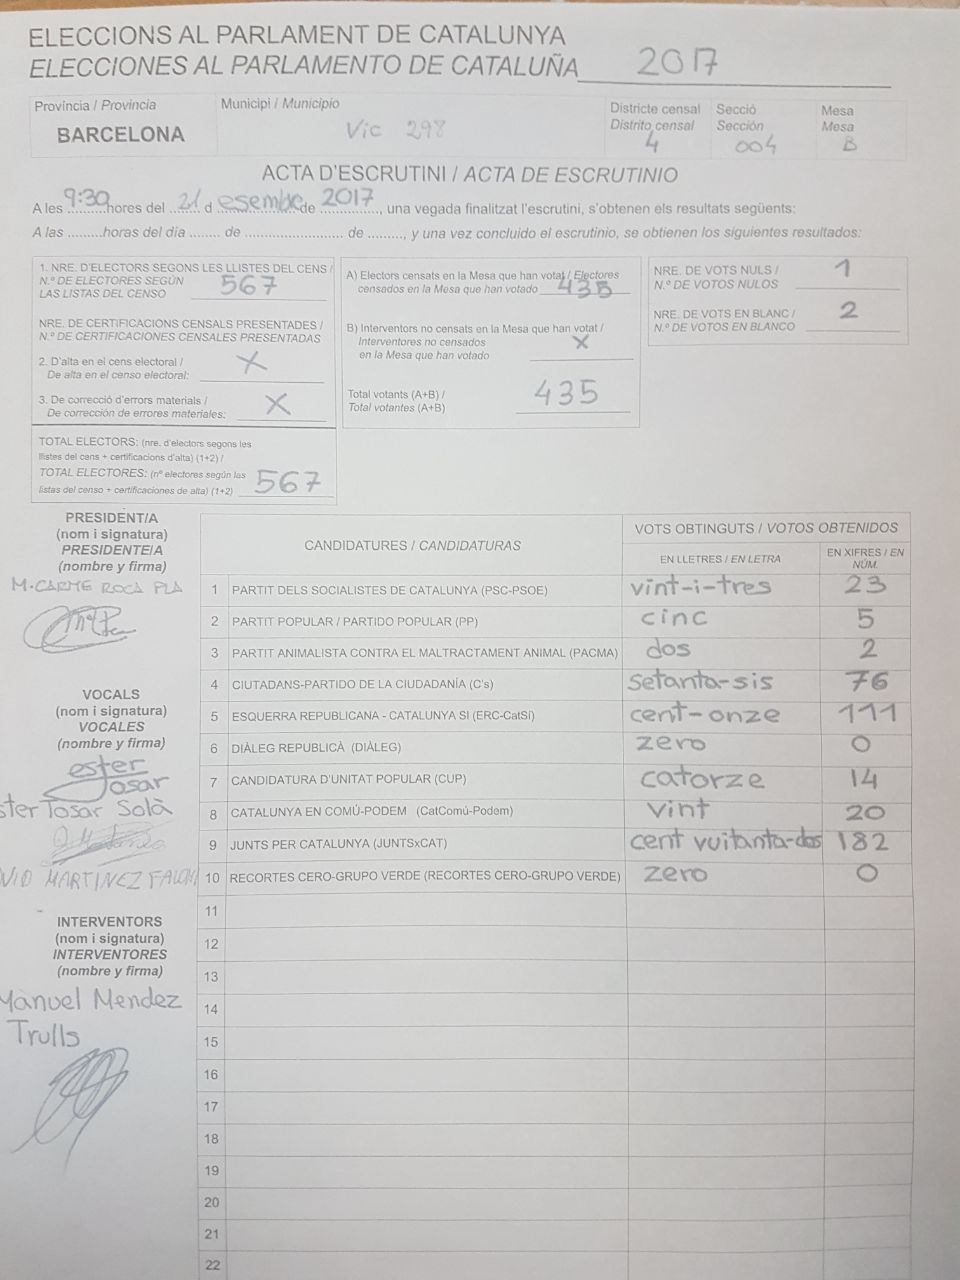 ELECCIONS AL PARLAMENT DE CATALUNYA
ELECCIONES AL PARLAMENTO DE CATALUÑA 2017
Província / Provincia
BARCELONA
Municipi / Municipio
Vic 298
Districte censal
Distrito censal
4
Secció
Sección
004
Mesa
Mesa
B
ACTA D'ESCRUTINI / ACTA DE ESCRUTINIO
A les 9:30 hores del 21 d esembre de 2017, una vegada finalitzat l'escrutini, s'obtenen els resultats següents:
A las .........horas del día ........ de ...................... de ........., y una vez concluido el escrutinio, se obtienen los siguientes resultados:
1. NRE. D'ELECTORS SEGONS LES LLISTES DEL CENS /
N.º DE ELECTORES SEGÚN
LAS LISTAS DEL CENSO 567
NRE. DE CERTIFICACIONS CENSALS PRESENTADES /
N.º DE CERTIFICACIONES CENSALES PRESENTADAS
2. D'alta en el cens electoral /
De alta en el censo electoral: X
3. De correcció d'errors materials /
De corrección de errores materiales: X
TOTAL ELECTORS: (nre. d'electors segons les
llistes del cens + certificacions d'alta) (1+2) /
TOTAL ELECTORES: (nº electores según las
listas del censo + certificaciones de alta) (1+2) 567
A) Electors censats en la Mesa que han votat / Electores
censados en la Mesa que han votado 435
B) Interventors no censats en la Mesa que han votat /
Interventores no censados
en la Mesa que han votado X
Total votants (A+B) /
Total votantes (A+B) 435
NRE. DE VOTS NULS /
N.º DE VOTOS NULOS 1
NRE. DE VOTS EN BLANC /
N.º DE VOTOS EN BLANCO 2
PRESIDENT/A
(nom i signatura)
PRESIDENTE/A
(nombre y firma)
M. CARME ROCA PLA
VOCALS
(nom i signatura)
VOCALES
(nombre y firma)
ester
Tosar
ster Tosar Solà
VID MARTINEZ
INTERVENTORS
(nom i signatura)
INTERVENTORES
(nombre y firma)
Manuel Mendez
Trulls
CANDIDATURES / CANDIDATURAS
VOTS OBTINGUTS / VOTOS OBTENIDOS
EN LLETRES / EN LETRA
EN XIFRES / EN
NÚM.
1 PARTIT DELS SOCIALISTES DE CATALUNYA (PSC-PSOE) vint-i-tres 23
2 PARTIT POPULAR / PARTIDO POPULAR (PP) cinc 5
3 PARTIT ANIMALISTA CONTRA EL MALTRACTAMENT ANIMAL (PACMA) dos 2
4 CIUTADANS-PARTIDO DE LA CIUDADANÍA (C's) setanta-sis 76
5 ESQUERRA REPUBLICANA - CATALUNYA SI (ERC-CatSí) cent-onze 111
6 DIÀLEG REPUBLICÀ (DIÀLEG) zero 0
7 CANDIDATURA D'UNITAT POPULAR (CUP) catorze 14
8 CATALUNYA EN COMÚ-PODEM (CatComú-Podem) vint 20
9 JUNTS PER CATALUNYA (JUNTSxCAT) cent vuitanta-dos 182
10 RECORTES CERO-GRUPO VERDE (RECORTES CERO-GRUPO VERDE) zero 0
11
12
13
14
15
16
17
18
19
20
21
22